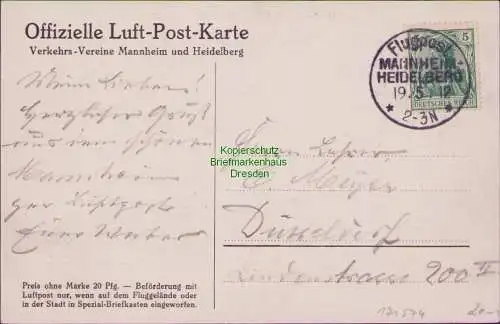 Offizielle Luft-Post-Karte
Verkehrs-Vereine Mannheim und Heidelberg
Flugpost
MANNHEIM-
HEIDELBERG
19.5.12
* 2-3N *
5
DEUTSCHES REICH
Meine Lieben!
Herzlichen Gruß
aus dem schönen
Mannheim
per Luftpost
Euer
Kopierschutz
Briefmarkenhaus
Dresden
Herrn Lehrer
E. Meyer
Düsseldorf
Lindenstrasse 200 II
Preis ohne Marke 20 Pfg. — Beförderung mit
Luftpost nur, wenn auf dem Fluggelände oder
in der Stadt in Spezial-Briefkasten eingeworfen.